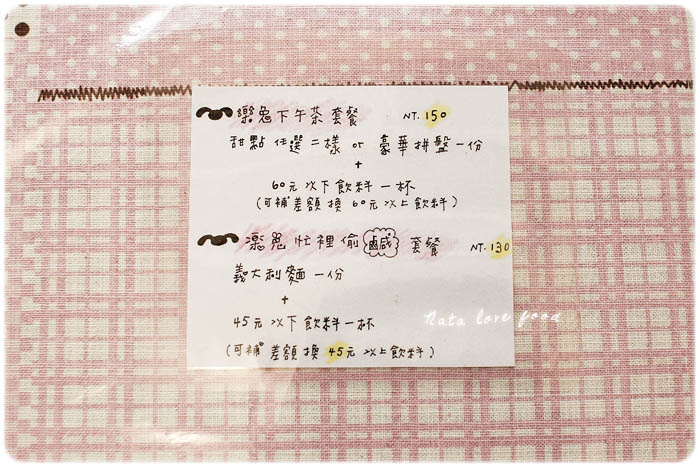 樂兔下午茶套餐 NT.150
甜點任選二樣 or 豪華拼盤一份
+
60元以下飲料一杯
(可補差額換60元以上飲料)
樂兔忙裡偷鹹套餐 NT.130
義大利麵一份
+
45元以下飲料一杯
(可補差額換45元以上飲料)
Nata love food